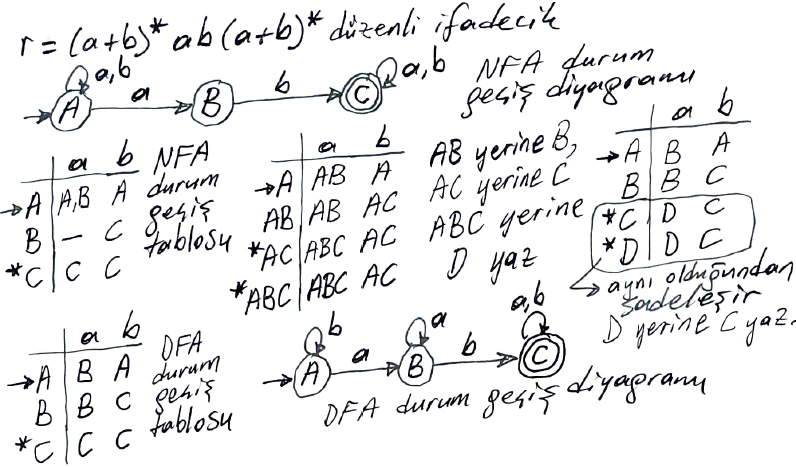 r = (a+b)* ab (a+b)* düzenli ifadecik
a,b
a,b
A a B b C
NFA durum
geçiş diyagramı
a b
→A A,B A
B — C
*C C C
NFA
durum
geçiş
tablosu
a b
→A AB A
AB AB AC
*AC ABC AC
*ABC ABC AC
AB yerine B,
AC yerine C
ABC yerine
D yaz
a b
→A B A
B B C
*C D C
*D D C
aynı olduğundan
sadeleşir
D yerine C yaz.
a b
→A B A
B B C
*C C C
DFA
durum
geçiş
tablosu
b
a
a,b
A a B b C
DFA durum geçiş diyagramı